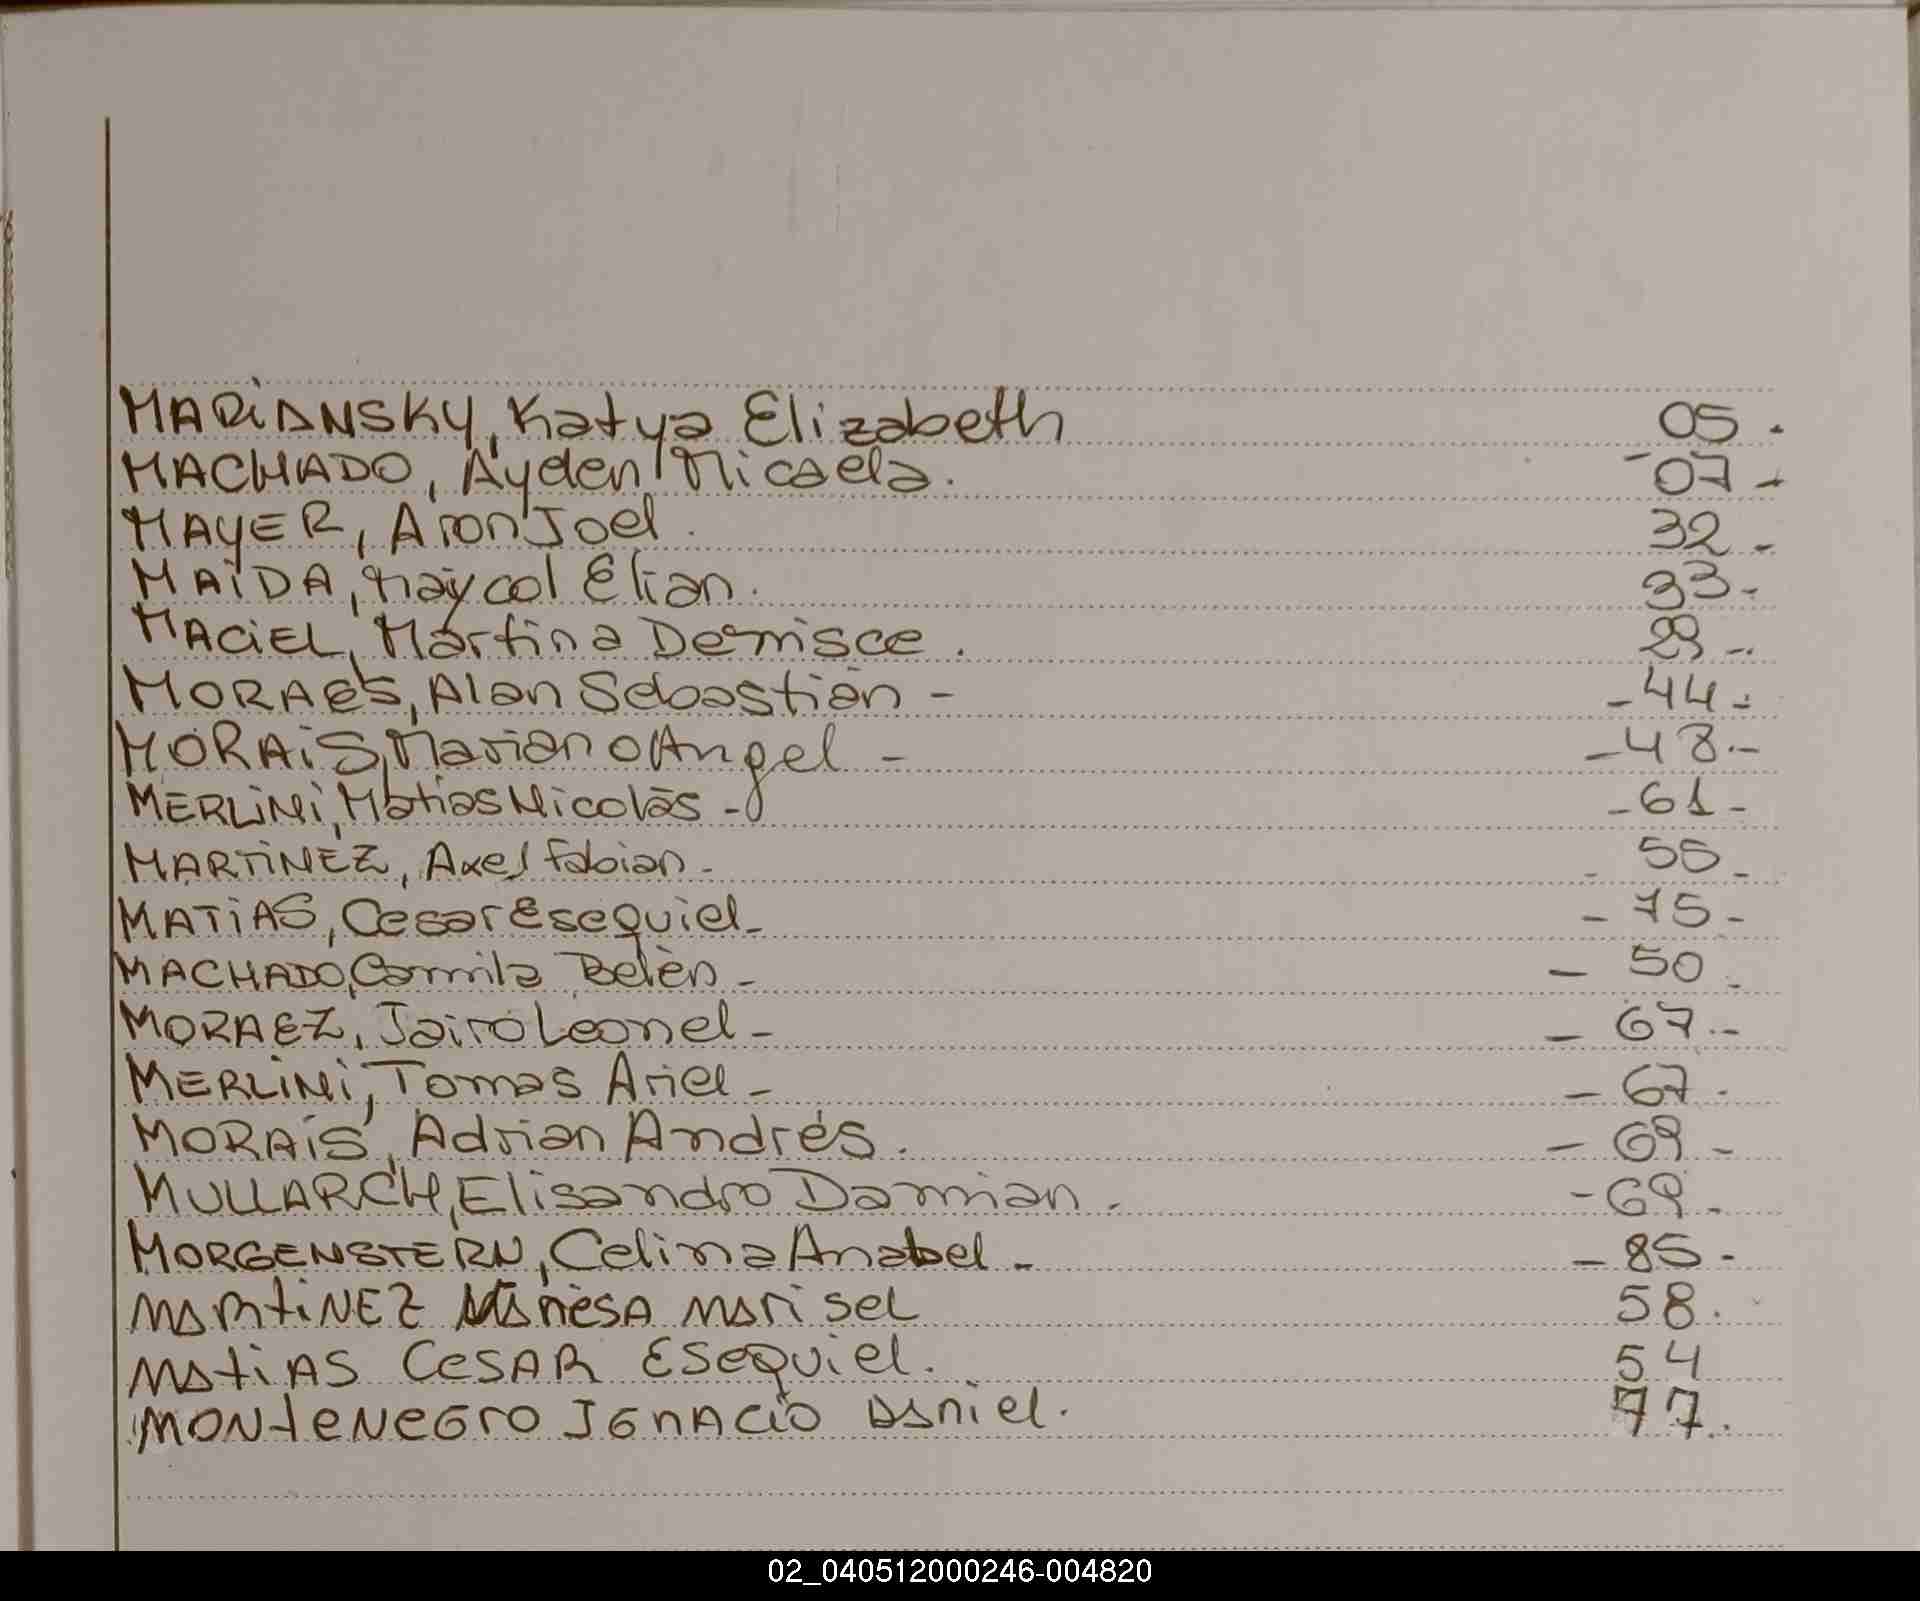 MARIANSKY, Katya Elizabeth 05.
MACHADO, Ayden Micaela. - 07-
MAYER, Aron Joel. 32-
MAIDA, Maycol Elian. 33-
MACIEL, Martina Dennisce. 29-.
MORAES, Alan Sebastián - -44-
MORAIS, Mariano Angel - -48.-
MERLINI, Matias Nicolás - -61-
MARTINEZ, Axel Fabian - - 55-
MATIAS, Cesar Esequiel - - 75-
MACHADO, Camila Belèn - - 50-
MORAEZ, Jairo Leonel - - 67.-
MERLINI, Tomas Ariel - - 67-
MORAIS, Adrian Andrés. - 69-
MULLARCH, Elisandro Damian. -69.
MORGENSTERN, Celina Anabel - - 85-
MARTINEZ MARISEL 58.
MATIAS CESAR ESEQUIEL. 54
MONTENEGRO IGNACIO DANIEL. 77.
02_040512000246-004820